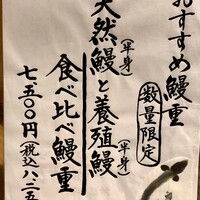 おすすめ鰻重
数量限定
天然鰻(半身)と養殖鰻(半身)
食べ比べ鰻重
七五〇〇円(税込八二五